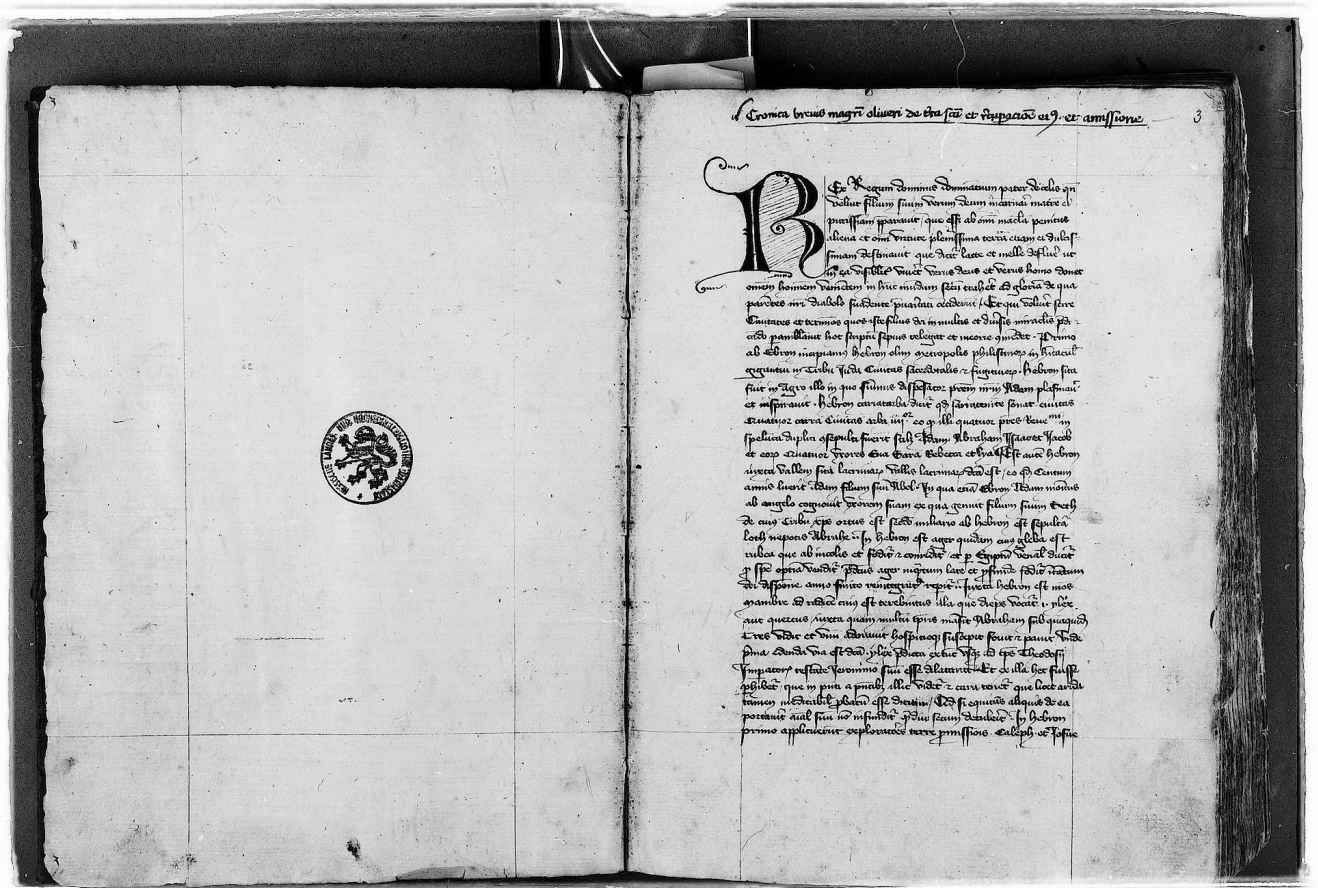 3
Cronica brevis magrī oliveri de tr̄ra scā et rec̄uperacōne eiꝰ et amissione
3
REx Regum dominus dominantium pater de celis qn̄
voluit filium suum verum deum incarnari matrē ei
purissimam p̄paravit, que esset ab om̄i macla penitus
aliena et om̄i virtute plenissima terrā etiam ei dulcis-
simam destinavit que dicit̄ lacte et melle defluere ut
in ea visibilit̄ viveret verus deus et verus homo donec
om̄em hominem venientem in hūc mūdum secū trahet̄ ad gloriā de qua
parentes nr̄i diabolo suadente
Civitates et terminos quos iste filius dei in multis et divˀsis miraclis
hoc scriptū sepius relegat et
Primo
ab Ebron incipiamꝰ hebron olim metropolis philistinoꝝ
gigantiū in Tribu Iuda Civitas sacerdotalis ⁊ fugitivoꝝ. hebron sita
fuit in Agro illo in quo sūmus dispēsator pr̄em nr̄m Adam plasmavˀ
et inspiravit. hebron cariatarba dicit̄ qd̄ sarracenice sonat civitas
Quatuor carra Civitas arba iiijor eo qd̄ illi quatuor pr̄es
spelūca duplici ꝯsepulti fuerūt scilȝ Adam Abraham Isaac et Iacob
et eoꝝ Quatuor vxores Eua Sara Rebecca et lya Est autē hebron
iuxta vallem sita lacrimaꝝ vallis lacrimaꝝ dcā est, eo qd̄ Centum
annis luxerit Adam filium suū Abel. In qua etiā Ebron Adam monitus
ab angelo cognovit vxorem suam ex qua genuit filium suum Seth
de cuiꝰ Tribu xp̄c ortus est Secūdo miliario ab hebron est sepultꝰa
loth nepotis Abrahe In hebron est ager quidam cuiꝰ gleba est
rubea que ab incolis et fodit̄ ⁊ comedit̄ et p̱ Egiptū venal̄ ducit̄
vendit̄ p̄dcūs ager inq̄ntum late et ꝓfunde fodit̄
dei disponē anno finito reintegratꝰ repit̄ Iuxta hebron est mos
Mambre ad radicē cuiꝰ est terebintus illa que dirps vocat̄ .i. ylex
aut quercus iuxta quam multū tp̄ris māsit Abraham sub qua
Tres vidit et vnū adoravit hospitioqȝ suscepit fouit ⁊ pauit
ylex p̄dicta extitit vsqȝ ad tp̄s Theodosii
Imperatorˀ testāte Ieronimo Et ex illa hec fuisse
ꝓhibet̄, que in pn̄ti a pn̄tibȝ illic videt̄ ⁊ cara tenet̄ que licet arida
tamen medicabil̄ ꝓbatˀ esse Qd̄ si equitās aliquis de ea
portauˀit aīal suū nō infundit̄ q̄ diu secum detulerit. In hebron
primo applicuerūt exploratores terre ꝓmissiōis. Caleph et Iosue
HESSISCHE LANDES- UND HOCHSCHULBIBLIOTHEK DARMSTADT